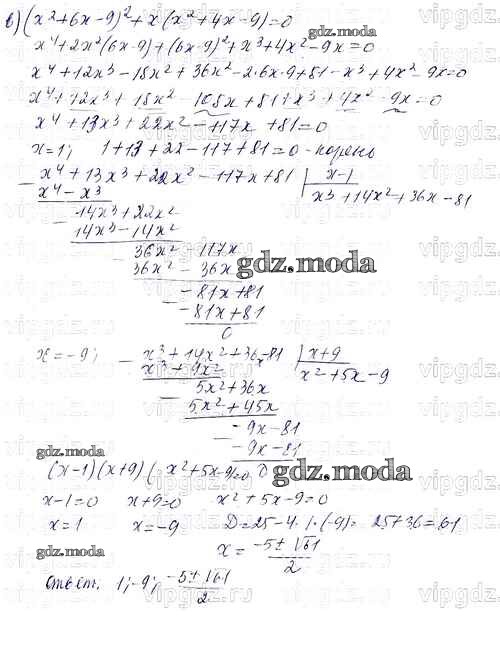 в) (x²+6x-9)²+x(x²+4x-9)=0
x⁴+2x²(6x-9)+(6x-9)²+x³+4x²-9x=0
x⁴+12x³-18x²+36x²-2·6x·9+81-x³+4x²-9x=0
x⁴+12x³+18x²-108x+81+x³+4x²-9x=0
x⁴+13x³+22x²-117x+81=0
x=1; 1+13+22-117+81=0-корень
- x⁴+13x³+22x²-117x+81 | x-1
x⁴-x³ x³+14x²+36x-81
- 14x³+22x²
14x³-14x²
- 36x²-117x
36x²-36x
gdz.moda
- -81x+81
-81x+81
0
x=-9; - x³+14x²+36x-81 | x+9
x³+9x² x²+5x-9
- 5x²+36x
5x²+45x
- -9x-81
-9x-81
gdz.moda
(x-1)(x+9)(x²+5x-9)=0
gdz.moda
x-1=0 x+9=0 x²+5x-9=0
x=1 x=-9 D=25-4·1·(-9)=25+36=61
gdz.moda
x=(-5±√61)/2
Ответ: 1;-9; (-5±√61)/2
vipgdz.ru